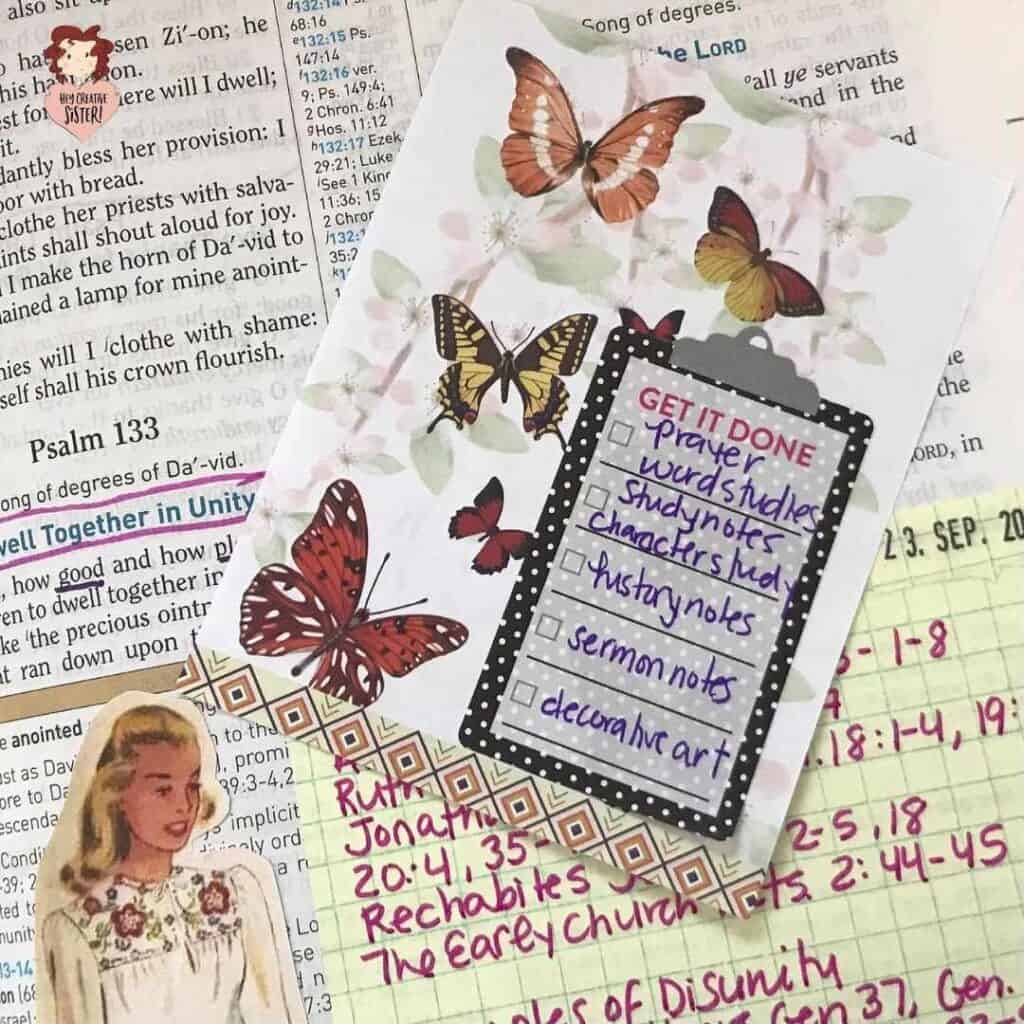 also
sen Zi´-on; he
his ha on.
est for here will I dwell;
it.
dantly bless her provision: I
oor with bread.
clothe her priests with salva-
ints shall shout aloud for joy.
I make the horn of Da´-vid to
ained a lamp for mine anoint-
nies will I clothe with shame:
self shall his crown flourish.
HEY CREATIVE
SISTER!
Psalm 133
ong of degrees of Da´-vid.
well Together in Unity
, how good and how pl
ren to dwell together in
ke the precious ointm
t ran down upon t
d132:14
68:16
e132:15 Ps.
147:14
f132:16 ver.
9; Ps. 149:4;
2 Chron. 6:41
gHos. 11:12
h132:17 Ezek.
29:21; Luke
iSee 1 King
11:36; 15
2 Chron
j132:1
35:2
Song of degrees.
he LORD
all ye servants
and in the
the
ORD, in
GET IT DONE
prayer
word studies
study notes
character study
history notes
sermon notes
decorative art
23. SEP. 20
- 1-8
18:1-4, 19:
Ruth
Jonath
20:4, 35-
2-5, 18
Rechabites
The Early Church
ts. 2:44-45
les of Disunity
Gen 37, Gen.
e anointed
st as Dav
ore to Da
escenda
Condi
-39; 2
ted to
munity
13-14
on (68
srael
to the
promi
89:3-4,2
implicit
ely ord
7:3